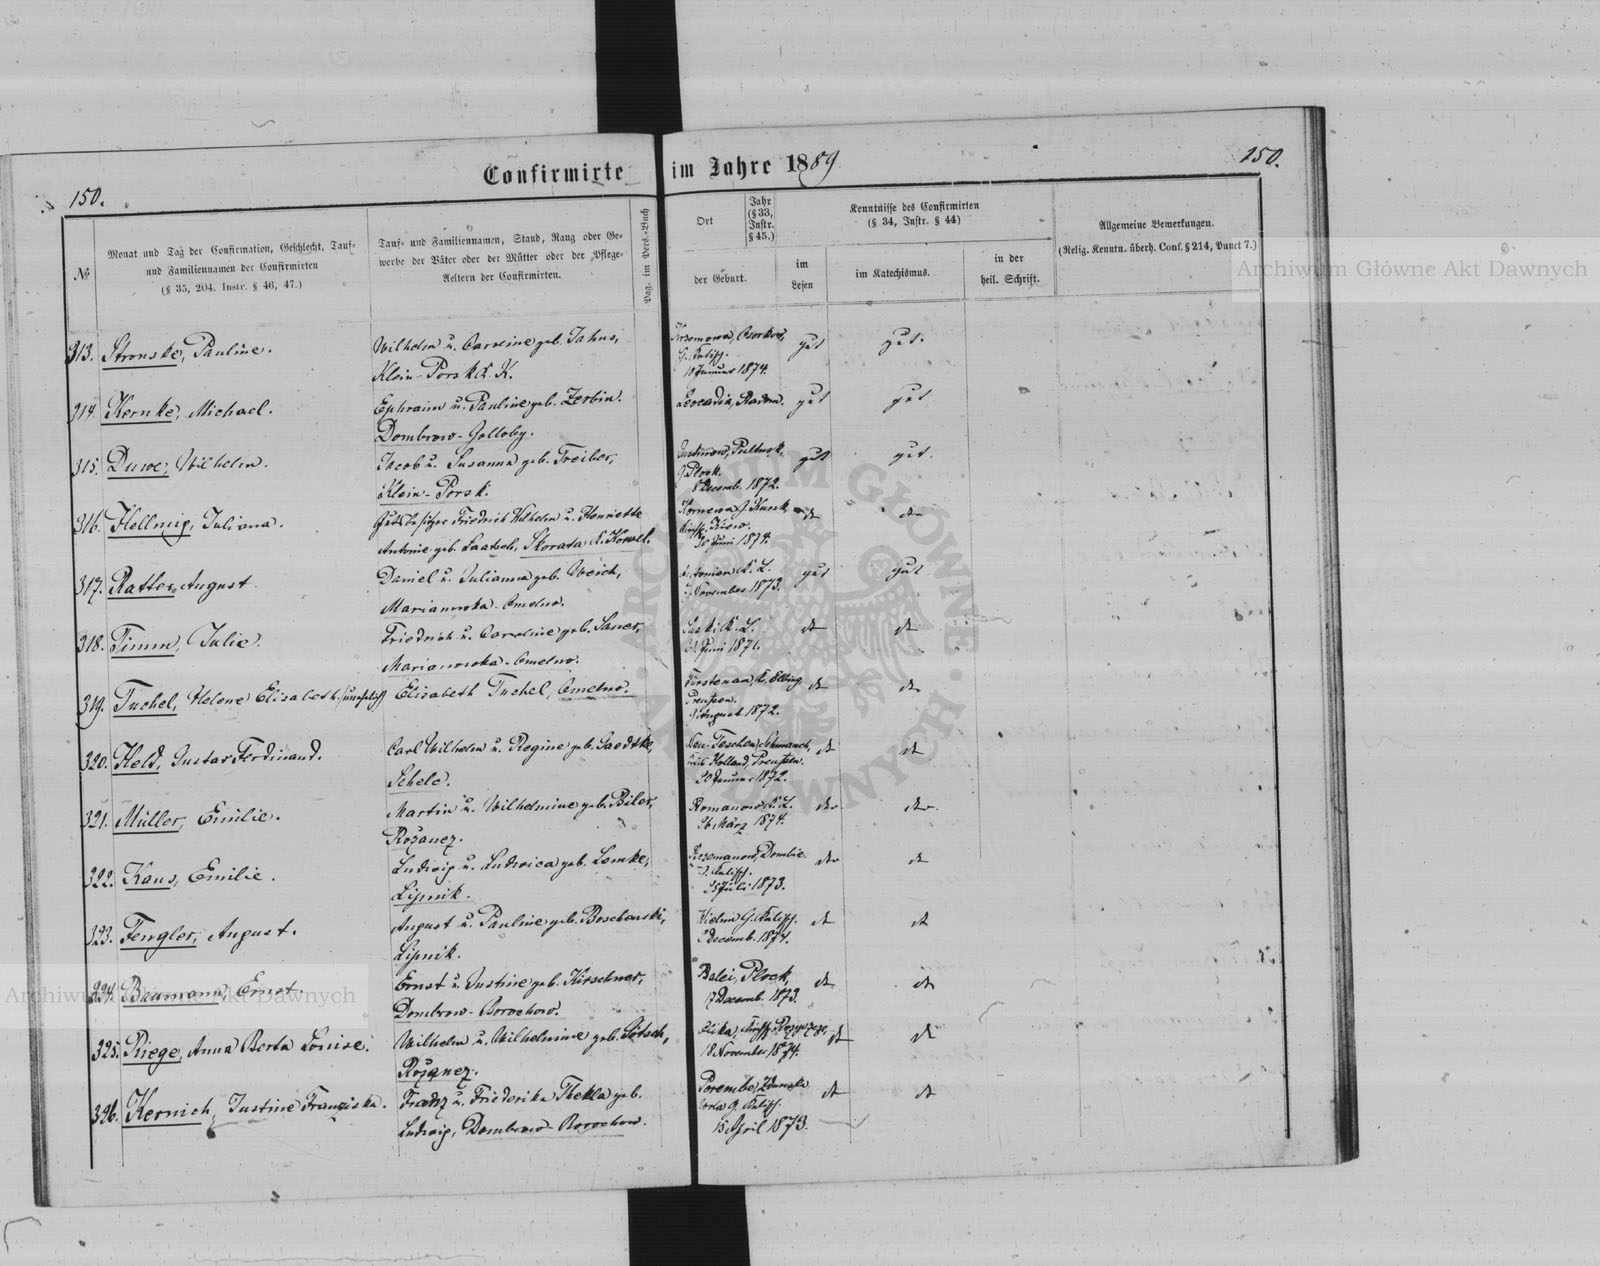 Confirmirte im Jahre 1889
150.
150.
№
Monat und Tag der Confirmation, Geschlecht, Tauf-
und Familiennamen der Confirmirten
(§ 35, 204. Instr. § 46, 47.)
Tauf- und Familiennamen, Stand, Rang oder Ge-
werbe der Väter oder der Mütter oder der Pflege-
Aeltern der Confirmirten.
Pag. im Pers.-Buch
Ort
Jahr
(§ 33,
Instr.
§ 45.)
der Geburt.
Kenntnisse des Confirmirten
(§ 34, Instr. § 44)
im
Lesen
im Katechismus.
in der
heil. Schrift.
Allgemeine Bemerkungen.
(Relig. Kenntn. überh. Conf. § 214, Punct 7.)
313. Stronske, Pauline.
Wilhelm u. Caroline geb. Jahns,
Klein-Porsk K. K.
Januar 1874.
gut gut.
314. Kernke, Michael.
Ephraim u. Pauline geb. Zerbin.
Dombrow-
Leocadia, Radom.
gut gut
315. Duwe, Wilhelm.
Jacob u. Susanna geb. Treiber,
Klein-Porsk.
Pultusk,
G. Plock.
8 Decemb. 1872.
gut gut.
316. Hellwig, Juliana.
Gutsbesitzer Friedrich Wilhelm u. Henriette
Antonie geb. Laatsch, Skorata K. Kowel.
G. Kursk,
Kiew.
Juni 1874.
dt dt
317. Ratter, August
Daniel u. Julianna geb. Weich,
Marianowka-Omelno.
Antonien K. L.
November 1873.
gut gut
318. Timm, Julie.
Friedrich u. Caroline geb. Sauer,
Marianowka-Omelno.
K. L.
Juni 1871.
dt dt
319. Tuchel, Helene Elisabeth (unehelich)
Elisabeth Tuchel, Omelno.
Fürstenau, K. Elbing
Preußen.
August 1872.
dt dt
320. Held, Gustav Ferdinand.
Carl Wilhelm u. Regine geb. Gaedtke,
Schele.
Neu-Teschen,
Holland, Preußen.
20 Januar 1872.
dt dt
321. Müller, Emilie.
Martin u. Wilhelmine geb. Biler,
Rożanez.
Romanow K. L.
26 März 1874.
dt dt
322. Kaus, Emilie.
Ludwig u. Ludwica geb. Lemke,
Lipnik.
Dombie
G. Kalisch.
25 Juli 1873.
dt dt
323. Fengler, August.
August u. Pauline geb. Boschanski,
Lipnik.
G. Kalisch.
Decemb. 1874.
dt dt
324. Baumann, Ernst.
Ernst u. Justine geb. Kirschner,
Dombrow-Borochow.
Balei, Plock,
17 Decemb. 1873.
dt dt
325. Riege, Anna Berta Louise.
Wilhelm u. Wilhelmine geb. Götsch,
Rożanez.
18 November 1874.
dt dt
326. Kernich, Justine Franziska.
Franz u. Friederika Thekla geb.
Ludwig, Dombrow-Borochow.
Porembe, Zdunska
Wola G. Kalisch.
15 April 1873.
dt dt
Archiwum Główne Akt Dawnych
Archiwum Główne Akt Dawnych
ARCHIWUM GŁÓWNE AKT DAWNYCH